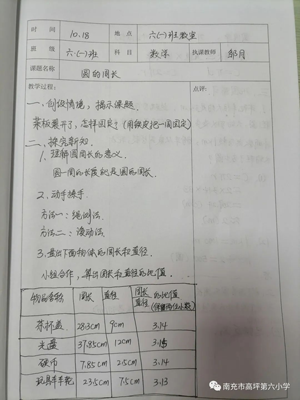 时间 10.18 地点 六(一)班教室
班级 六(一)班 科目 数学 执教教师 邹月
课题名称 圆的周长
教学过程： 点评：
一、创设情境，揭示课题
菜板裂开了，怎样固定？(用铁皮把一周固定)
二、探究新知
1、理解圆周长的意义.
圆一周的长度就是圆的周长
2、动手操手
方法一：绳测法
方法二：滚动法
3、量出下面物体的周长和直径
小组合作，算出周长和直径的比值.
物品名称 周长 直径 周长/直径的比值(保留两位小数)
茶杯盖 28.3cm 9cm 3.14
光盘 37.85cm 12cm 3.15
硬币 7.85cm 2.5cm 3.14
玩具车车轮 23.5cm 7.5cm 3.13
南充市高坪第六小学